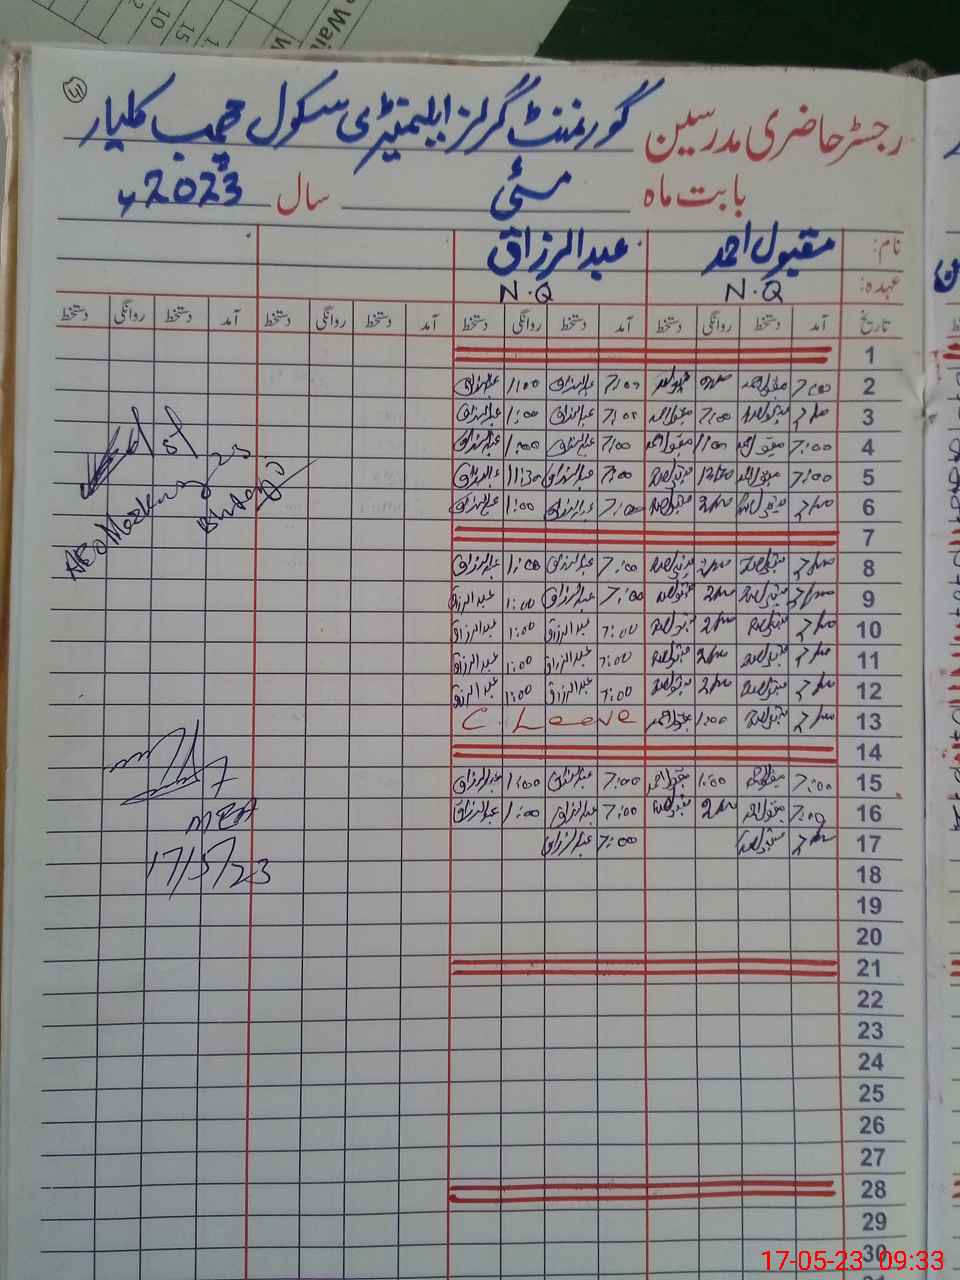 رجسٹر حاضری مدرسین گورنمنٹ گرلز ایلیمنٹری سکول چھب کلیار
بابت ماہ مئی سال 2023ء
نام: مقبول احمد عبدالرزاق
عہدہ: N.Q N.Q
تاریخ آمد دستخط روانگی دستخط آمد دستخط روانگی دستخط آمد دستخط روانگی دستخط آمد دستخط روانگی دستخط
1
2 7:00 مقبول احمد 7:00 عبدالرزاق 1:00 عبدالرزاق
3 مقبول احمد 7:00 عبدالرزاق 1:00 عبدالرزاق
4 7:00 مقبول احمد 1:00 مقبول احمد 7:00 عبدالرزاق 1:00 عبدالرزاق
5 7:00 مقبول احمد مقبول احمد 7:00 عبدالرزاق 11:30 عبدالرزاق
6 مقبول احمد مقبول احمد 7:00 عبدالرزاق 1:00 عبدالرزاق
7
8 مقبول احمد مقبول احمد 7:00 عبدالرزاق 1:00 عبدالرزاق
9 مقبول احمد مقبول احمد 7:00 عبدالرزاق 1:00 عبدالرزاق
10 مقبول احمد مقبول احمد 7:00 عبدالرزاق 1:00 عبدالرزاق
11 مقبول احمد مقبول احمد 7:00 عبدالرزاق 1:00 عبدالرزاق
12 مقبول احمد مقبول احمد 7:00 عبدالرزاق 1:00 عبدالرزاق
13 مقبول احمد 1:00 مقبول احمد C Leave
14
15 7:00 مقبول احمد 1:00 مقبول احمد 7:00 عبدالرزاق 1:00 عبدالرزاق
16 7:00 مقبول احمد مقبول احمد 7:00 عبدالرزاق 1:00 عبدالرزاق
17 مقبول احمد 7:00 عبدالرزاق
18
19
20
21
22
23
24
25
26
27
28
29
30
MEA
17/5/23
17-05-23 09:33